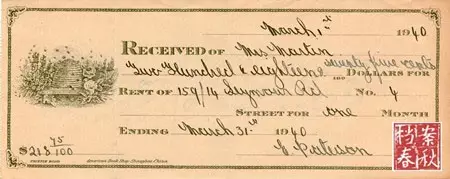 March 1st 1940
RECEIVED OF Mrs Martin
Two Hundred & eighteen seventy five cents 100 DOLLARS FOR
RENT OF 159/14 Seymour Rd No. 4
STREET FOR one MONTH
ENDING March 31st 1940
$218 75/100
American Book Shop, Shanghai, China.
档案
春秋